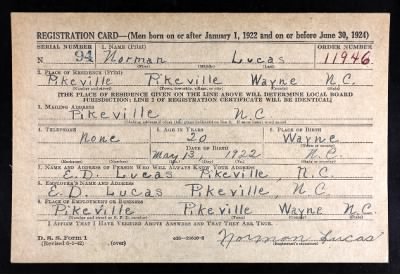 REGISTRATION CARD—(Men born on or after January 1, 1922 and on or before June 30, 1924)
SERIAL NUMBER 1. NAME (Print) ORDER NUMBER
N 94 Norman Lucas 11946
(First) (Middle) (Last)
2. PLACE OF RESIDENCE (Print)
Pikeville Pikeville Wayne N.C.
(Number and street) (Town, township, village, or city) (County) (State)
[THE PLACE OF RESIDENCE GIVEN ON THE LINE ABOVE WILL DETERMINE LOCAL BOARD
JURISDICTION; LINE 2 OF REGISTRATION CERTIFICATE WILL BE IDENTICAL]
3. MAILING ADDRESS
Pikeville N.C.
[Mailing address if other than place indicated on line 2. If same insert word same]
4. TELEPHONE 5. AGE IN YEARS 6. PLACE OF BIRTH
None 20 Wayne
DATE OF BIRTH
May 13 1922 N.C.
(Exchange) (Number) (Mo.) (Day) (Yr.) (State or country)
7. NAME AND ADDRESS OF PERSON WHO WILL ALWAYS KNOW YOUR ADDRESS
E.D. Lucas Pikeville, N.C.
8. EMPLOYER'S NAME AND ADDRESS
E.D. Lucas Pikeville, N.C
9. PLACE OF EMPLOYMENT OR BUSINESS
Pikeville Pikeville Wayne N.C.
(Number and street or R. F. D. number) (Town) (County) (State)
I AFFIRM THAT I HAVE VERIFIED ABOVE ANSWERS AND THAT THEY ARE TRUE.
D. S. S. Form 1 (over) Norman Lucas